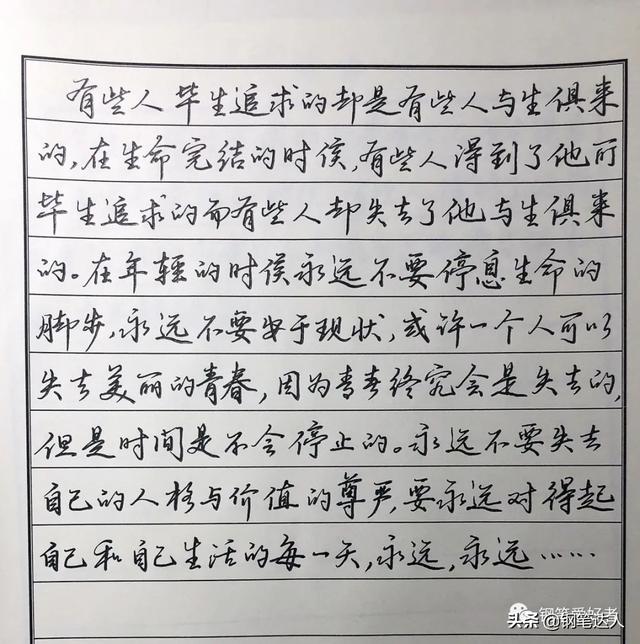 有些人毕生追求的却是有些人与生俱来
的,在生命完结的时候,有些人得到了他所
毕生追求的而有些人却失去了他与生俱来
的。在年轻的时候永远不要停息生命的
脚步,永远不要安于现状,或许一个人可以
失去美丽的青春,因为青春终究会是失去的,
但是时间是不会停止的。永远不要失去
自己的人格与价值的尊严,要永远对得起
自己和自己生活的每一天,永远,永远……
钢笔爱好者
头条@钢笔达人